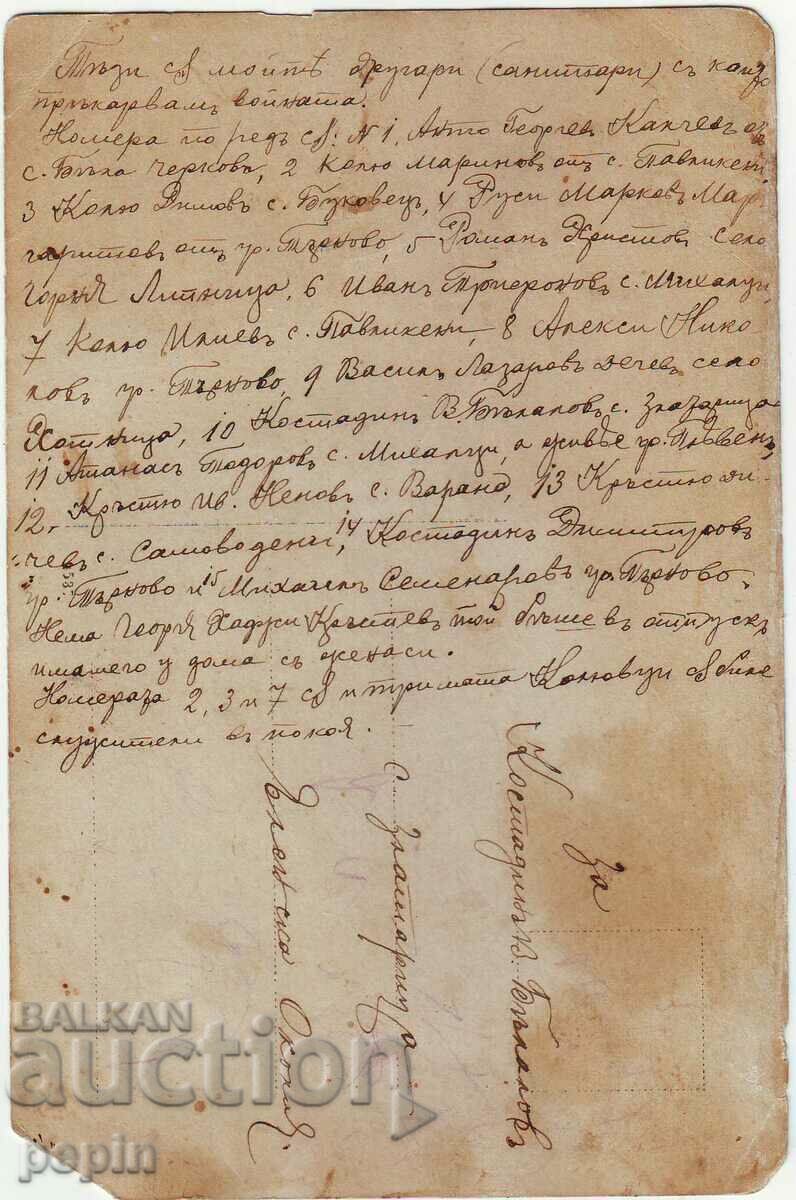 Тѣзи сѫ мойтѣ другари (санитари) съ които
прѣкарвамъ войната.
Номера по редъ сѫ: N 1, Анто Георгевъ Канчевъ отъ
с. Бѣла Черкова, 2 Колю Мариновъ отъ с. Павликени,
3 Колю Димовъ с. Буковецъ, 4 Руси Марковъ Мар
гаритовъ отъ гр. Търново, 5 Романъ Христовъ село
Горня Липница, 6 Иванъ с. Михалци,
7 Колю Илиевъ с. Павликени, 8 Алекси Нико
ловъ гр. Търново, 9 Василъ Лазаровъ Дечевъ село
Хотница, 10 Костадинъ В. Бѣлаловъ с. Златарица
11 Атанасъ Тодоровъ с. Михалци, а живѣе гр. Плѣвенъ,
12. Кръстю Ив. Неновъ с. 13 Кръстю Ди-
чевъ с. Самоводени, 14 Костадинъ Димитровъ
гр. Търново и 15 Михаилъ Семенаровъ гр. Търново.
Нема Георгя Хаджи Кръстевъ той бѣше въ отпускъ
имаше го у дома съ жена си.
Номера за 2, 3 и 7 сѫ и тримата Колювци сѫ
служители въ покоя.
за
Костадинъ В. Бѣлаловъ
с. Златарица
Еленска Околия.
BALKAN
auction
pepin